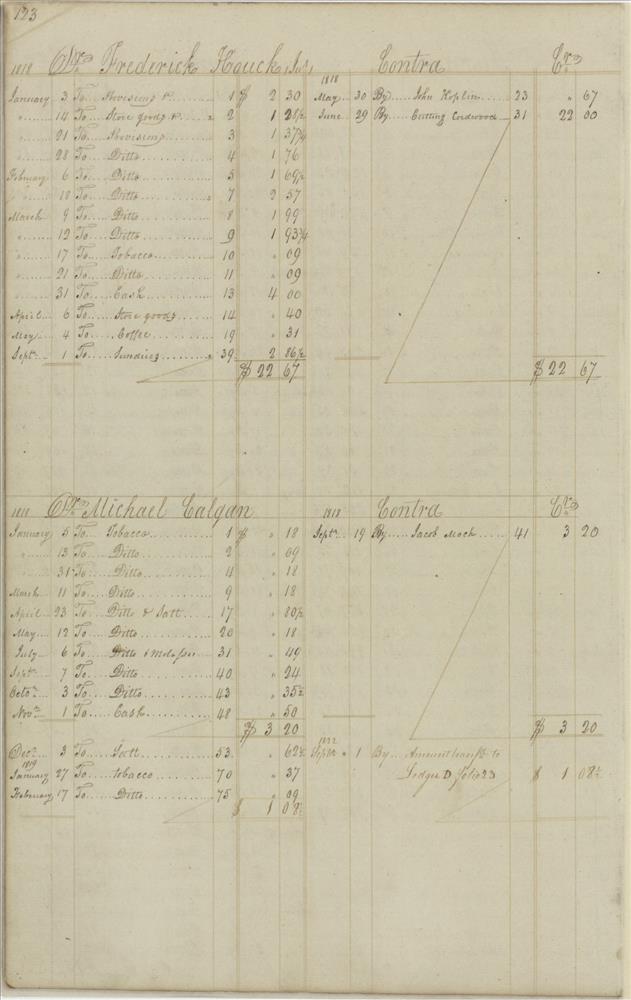 123
1818 Dr. Frederick Houck, Jur. Contra Cr.
1818
January 3 To Provisions &. 1 $ 2 30 May 30 By John Koplin 23 " 67
" 14 To Store goods &. " 2 1 28½ June 29 By Cutting Cordwood 31 22 00
" 21 To Provisions 3 1 37¼
" 28 To Ditto 4 1 76
February 6 To Ditto 5 1 69½
" 18 To Ditto 7 2 57
March 9 To Ditto 8 1 99
" 12 To Ditto 9 1 93¾
" 17 To Tobacco 10 " 09
" 21 To Ditto 11 " 09
" 31 To Cash 13 4 00
April 6 To Store goods 14 " 40
May 4 To Coffee 19 " 31
Septr. 1 To Sundries " 39 2 86½
$ 22 67 $ 22 67
1818 Dr. Michael Calgan 1818 Contra Cr.
January 5 To Tobacco 1 $ " 18 Septr. 19 By Jacob Mock 41 3 20
" 13 To Ditto 2 " 09
" 31 To Ditto 4 " 18
March 11 To Ditto 9 " 18
April 23 To Ditto & Salt 17 " 80½
May 12 To Ditto 20 " 18
July 6 To Ditto & Molasses 31 " 49
Septr. 7 To Ditto 40 " 24
Octor. 3 To Ditto 43 " 35½
Novr. 1 To Cash 48 " 50
$ 3 20 $ 3 20
1822
Decr. 3 To 53 " 62½ Septr. 1 By Amount to
1819
January 27 To tobacco 70 " 37 Ledger D folio 23 $ 1 08½
February 17 To Ditto 75 " 09
$ 1 08½